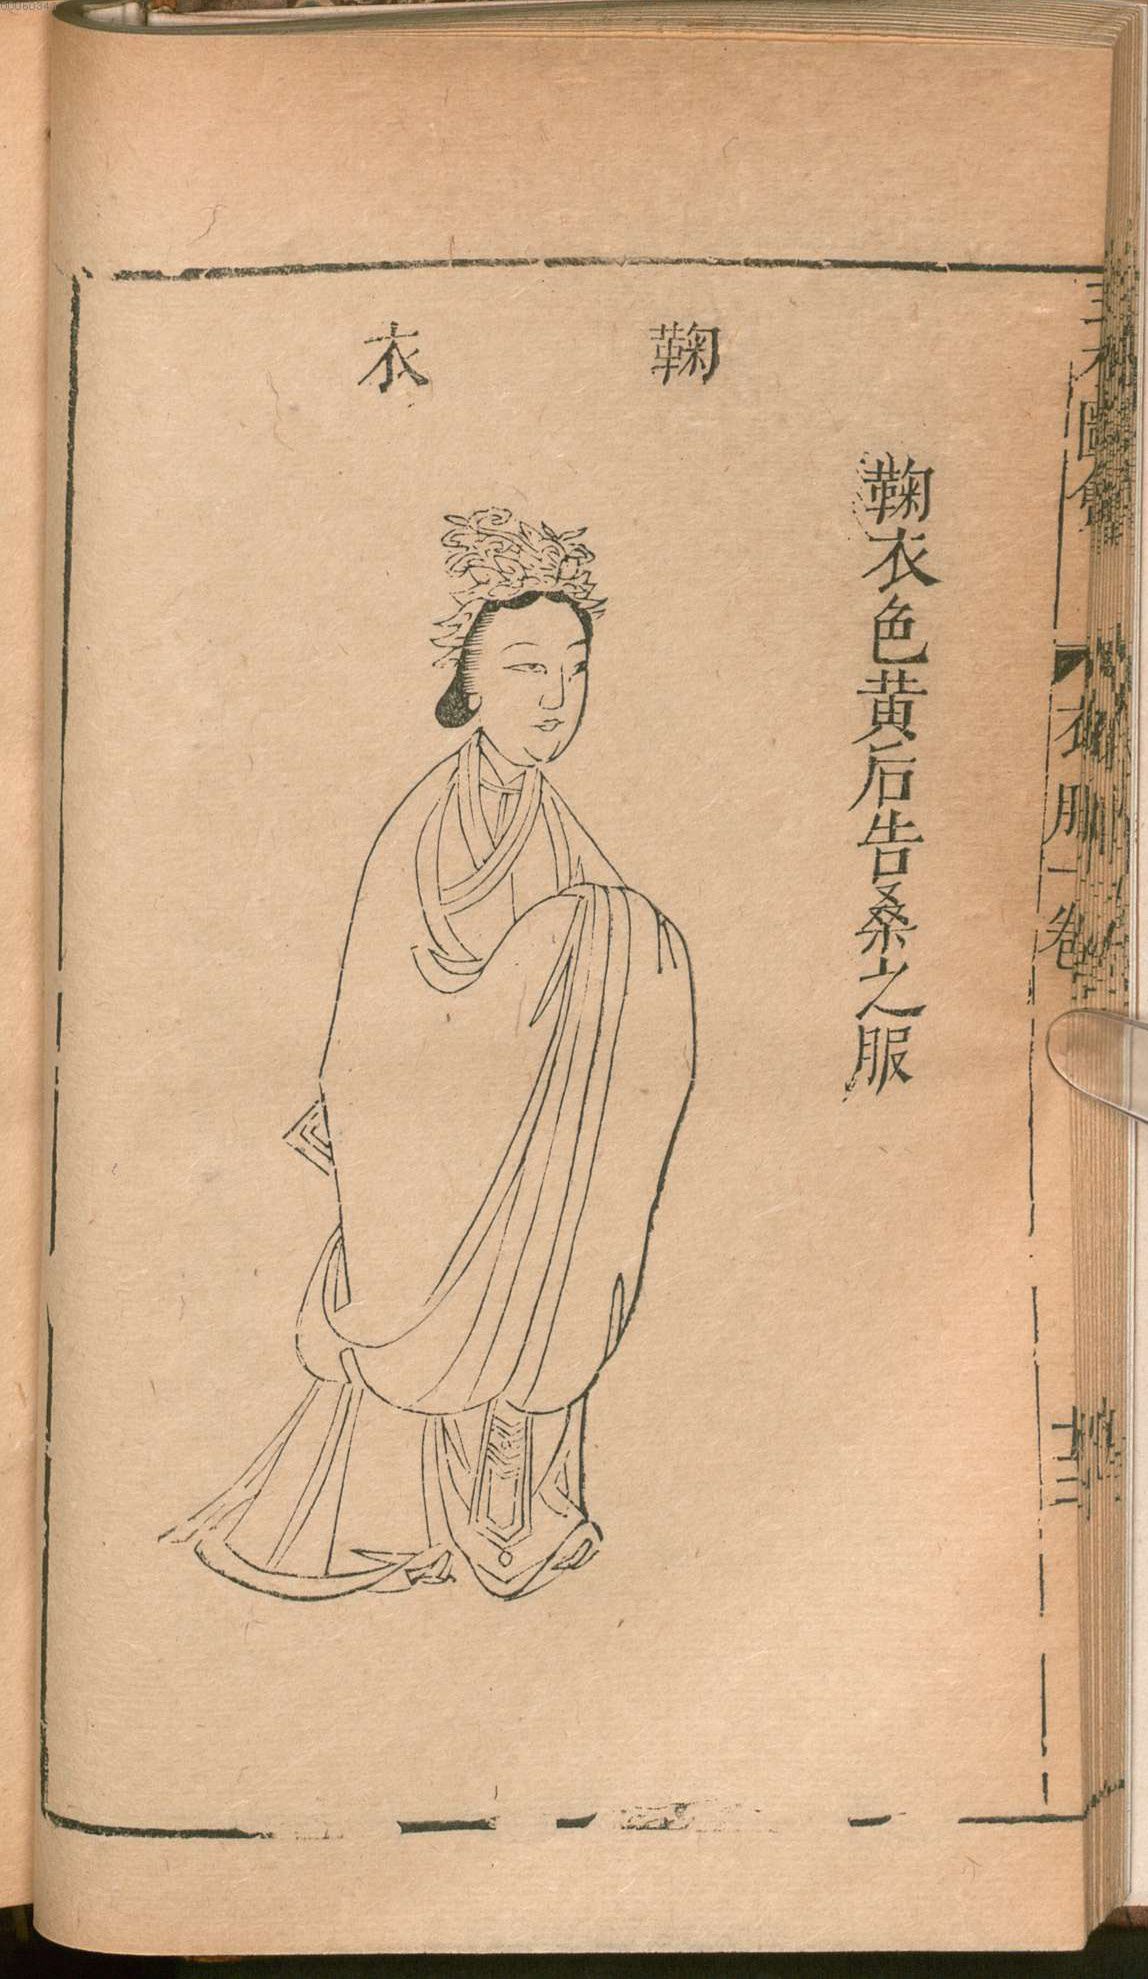 鞠衣
鞠衣色黄后告桑之服
三才圖會
衣服一卷
十二